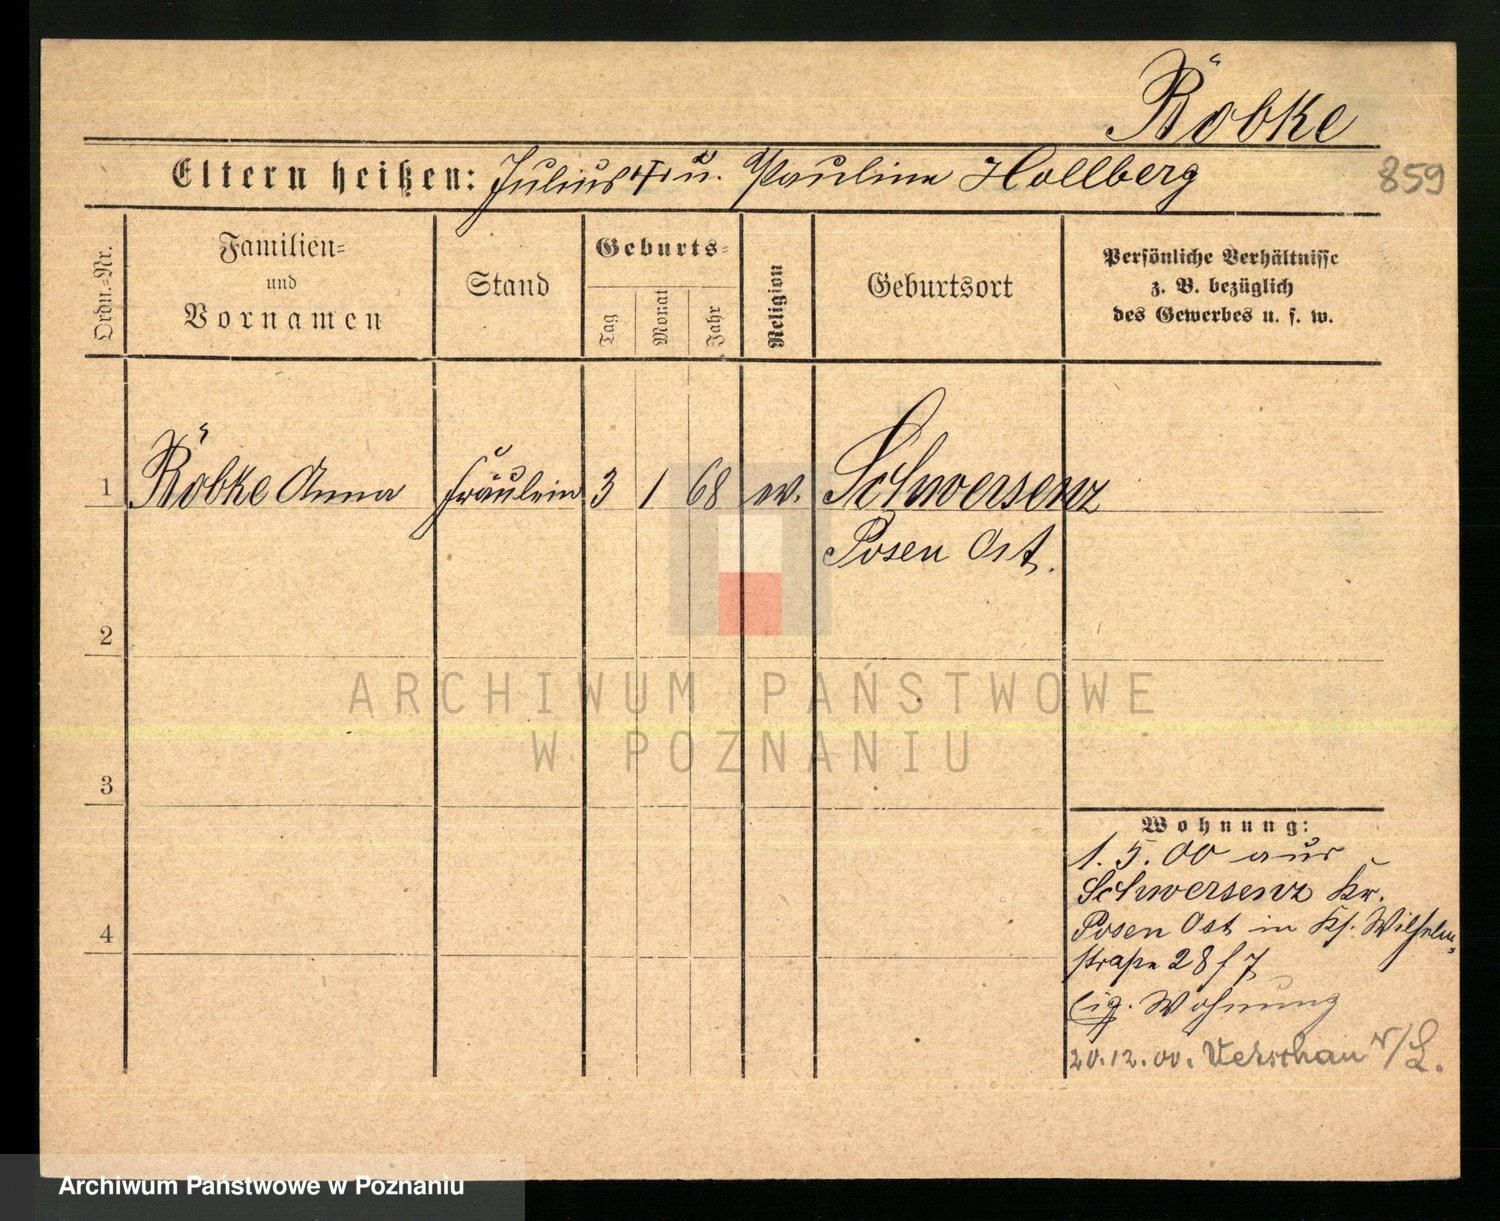 Röbke
Eltern heißen: Julius u. Pauline Hollberg
859
Ordn.-Nr.
Familien-
und
Vornamen
Stand
Geburts-
Tag
Monat
Jahr
Religion
Geburtsort
Persönliche Verhältnisse
z. B. bezüglich
des Gewerbes u. s. w.
1 Röbke Anna Fräulein 3 1 68 Schwersenz
Posen Ost.
2
3
4
Wohnung:
1. 5. 00 aus
Schwersenz Kr.
Posen Ost in Wilhelm-
straße 28
Eig. Wohnung
20.12.00. Vetschau
ARCHIWUM PAŃSTWOWE
W POZNANIU
Archiwum Państwowe w Poznaniu